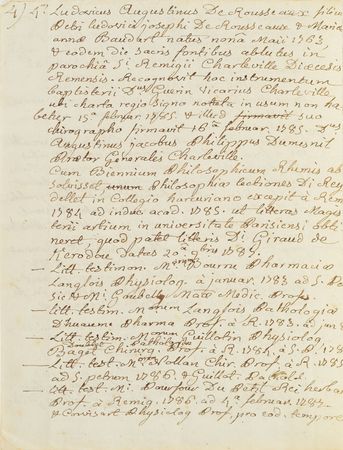 4) 4° Ludovicus Augustinus De Rousseaux filius
Petri ludovici josephi De Rousseaux & Mariæ
annæ Baudart natus nona Maii 1763,
& eodem die sacris fontibus ablutus in
parochia Sti Remigii Charleville Diœcesis
Remensis. Recognovit hoc instrumentum
baptisterii Dnus Guerin Vicarius Charleville
ubi charta regio signo notata in usum non ha
betur 15a februar. 1785. & illud firmavit suo
chirographo firmavit 16a februar. 1785. Dnus
Augustinus jacobus Philippus Dumesnil
Prætor Generalis Charleville.
Cum Biennium Philosophicum Rhemis ab
solvisset, unum Philosophiæ lectiones Di
dellet in Collegio harcuriano excepit à Rem
1784 ad induc. acad. 1785. ut litteras Magis
terii artium in universitate Parisiensi obti
neret, quod patet litteris Di Giraud de
Keroudou Datas 20a 9bris 1785.
— Litt. testimon. Mi Pharmaciæ
Langlois Physiolog. à januar. 1783 ad S. Pe
& Mi Mate Medic. Prof.
— litt. testim. Morum Langlois Pathologiæ
Dhuaume Pharma Prof. à R. 1783. ad
— Litt. testim. Morum Guillotin Physiolog.
& Pathologiæ
Baget Chirurg. Prof. à R. 1784. à S. P. 178
— Litt. test. Mrum Mollan Chir. Prof. à R. 1785
ad S. petrum 1786. & Guillot. Pathol.
— Litt. test. Mi Pourfour Du Petit Rei herbar
Prof. à Remig. 1786. ad 4a februar. 1787.
& Corvisart Physiolog Prof. pro eod. tempore